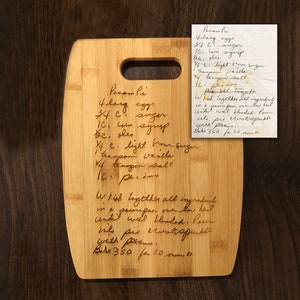 Pecan Pie
4 large eggs
3/4 C. sugar
1 C. lite syrup
2 C. oleo
1/4 C. light brown sugar
1 teaspoon vanilla
1/4 teaspoon salt
1 C. pecans
Whisk together all ingredients
in a saucepan over low heat
until well blended. Pour
into pie crust
with pecans.
Bake 350 for 50 minutes
Pecan Pie
4 large eggs
3/4 C. sugar
1 C. lite syrup
C. oleo
C. light brown sugar
teaspoon vanilla
teaspoon salt
C. pecans
Whisk together all ingredients
in a saucepan over low heat
until well blended. Pour
into pie crust
with pecans.
Bake 350 for 50 minutes